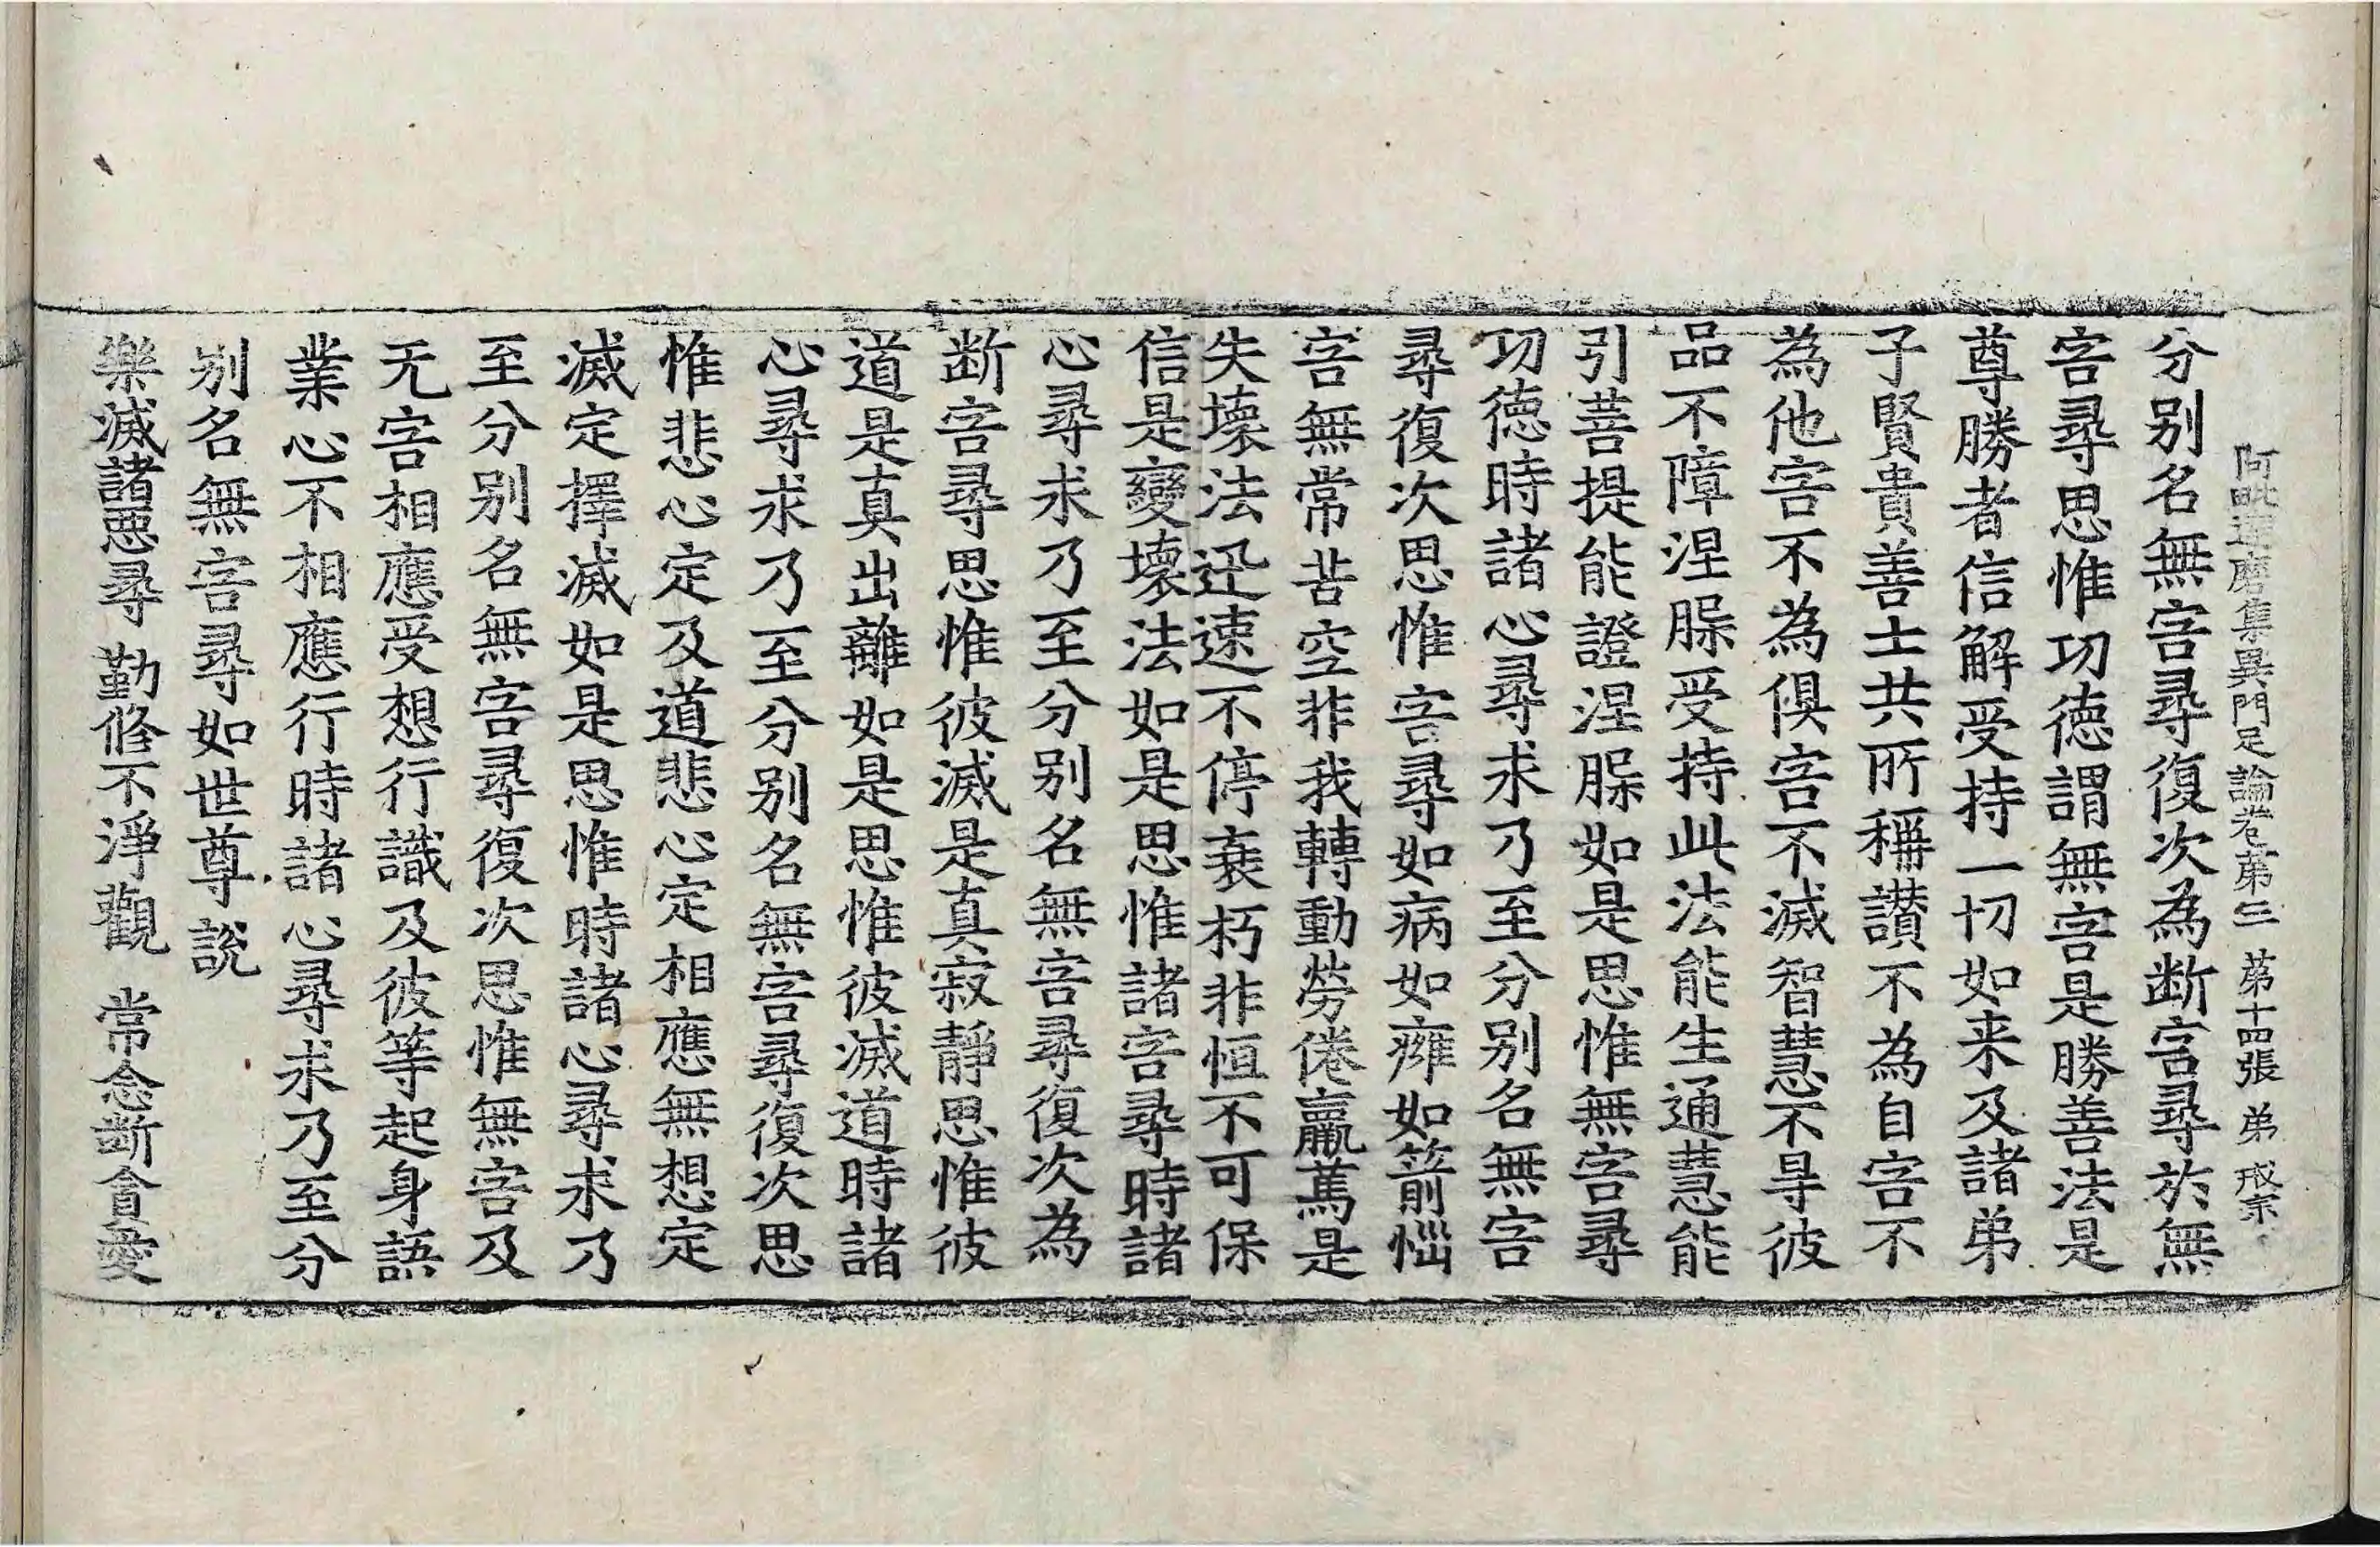 阿毗達磨集異門足論卷第三 第十四張 弟 戒宗
分别名無害尋復次為断害尋於無
害尋思惟功徳謂無害是勝善法是
尊勝者信解受持一切如来及諸弟
子賢貴善士共所稱讃不為自害不
為他害不為俱害不滅智慧不㝵彼
品不障涅槃受持此法能生通慧能
引菩提能證涅槃如是思惟無害尋
功徳時諸心尋求乃至分别名無害
尋復次思惟害尋如病如癰如箭惱
害無常苦空非我轉動勞倦羸篤是
失壞法迅速不停衰朽非恒不可保
信是變壞法如是思惟諸害尋時諸
心尋求乃至分别名無害尋復次為
断害尋思惟彼滅是真寂靜思惟彼
道是真出離如是思惟彼滅道時諸
心尋求乃至分别名無害尋復次思
惟悲心定及道悲心定相應無想定
滅定擇滅如是思惟時諸心尋求乃
至分别名無害尋復次思惟無害及
无害相應受想行識及彼等起身語
業心不相應行時諸心尋求乃至分
别名無害尋如世尊說
樂滅諸惡尋 勤修不淨觀 常念断貪愛